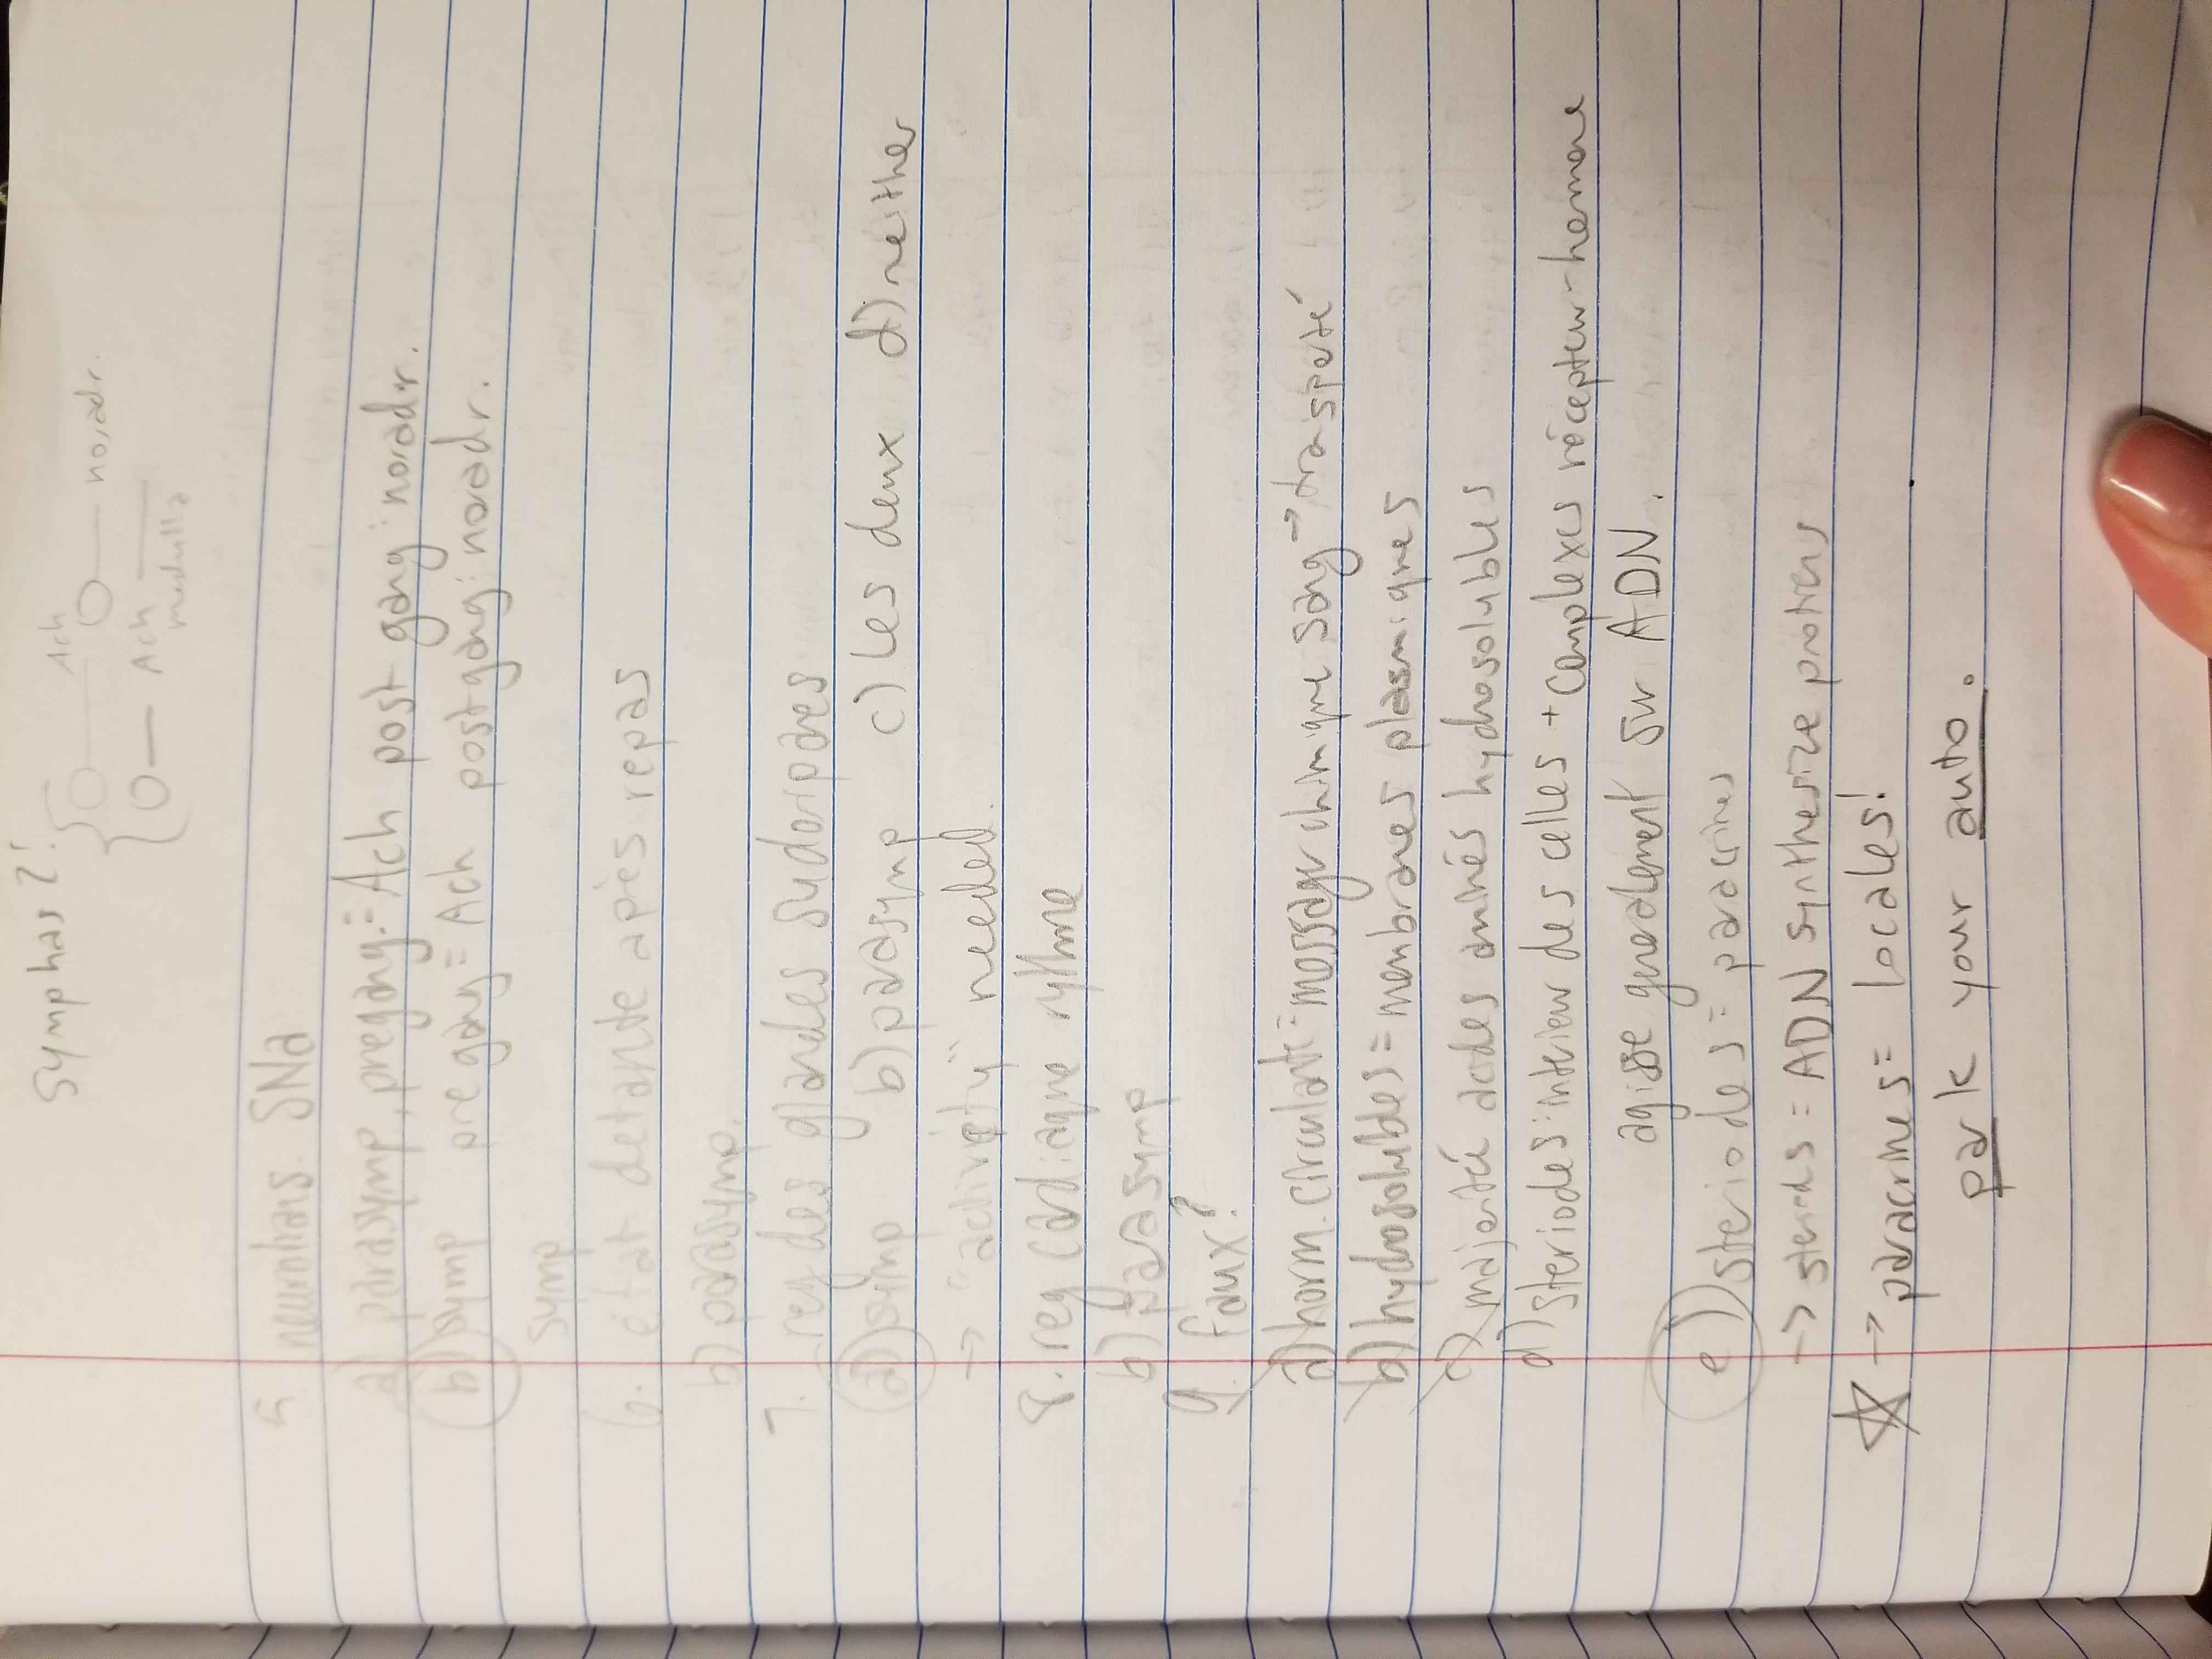 symp has 2!
Ach
noradr.
Ach
medulla
5 neurotrans. SNa
a) parasymp, pregang.= Ach post gang: noradr.
b) symp pregang= Ach postgang: noradr.
symp
6. état detante après repas
b) parasymp.
7. reg des glandes sudoripares
a) symp b) parasymp c) Les deux d) neither
→ "activity" needed.
8. reg cardiaque rythme
b) parasymp
9. faux?
a) horm. circulant= messager chimique sang → transporté
b) hydrosolubles = membranes plasmiques
c) majorité acides aminés hydrosolubles
d) steriodes: interieur des celles + complexes récepteur-hormone
agisse generalement sur ADN.
e) steriodes = paracrines
→ steriods = ADN synthesize protiens
☆ → paracrines = locales!
park your auto.